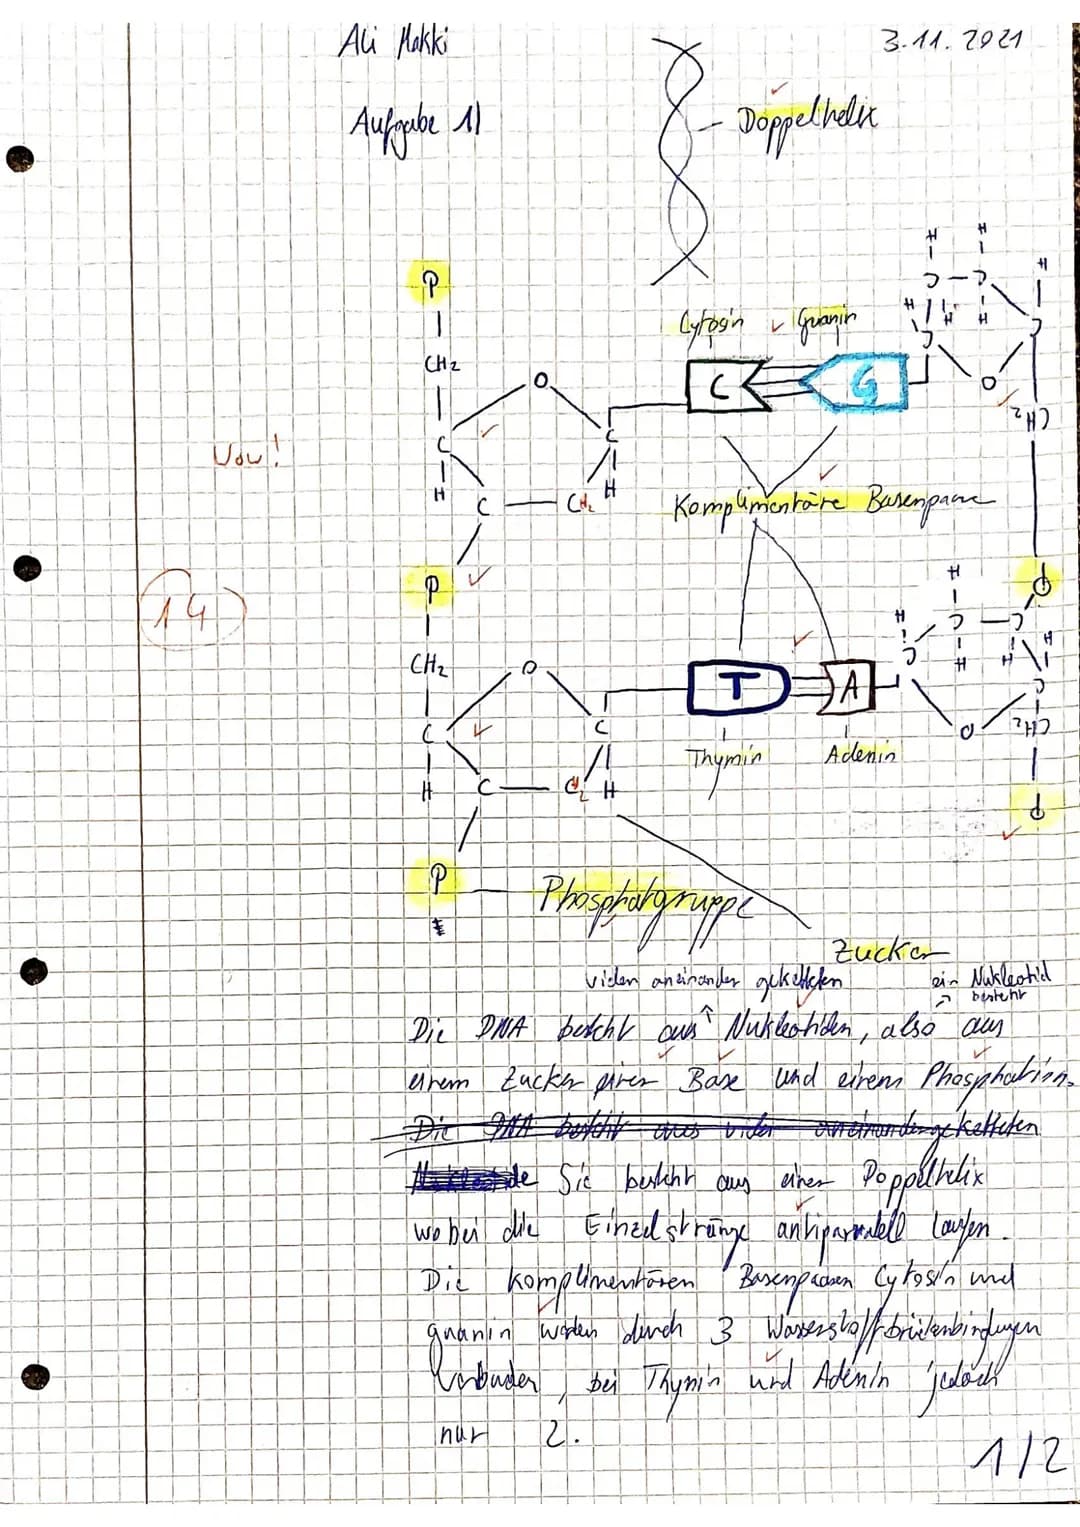 Ali Makki
3.11.2021
Aufgabe 1)
Doppelhelix
P
CH2
O
C
C
H
H
C
CH2
Cytosin
Guanin
C
G
H
H
H
C
C
H
H
H
C
C
O
CH2
Wow!
Komplimentäre Basenpaare
14
P
P
CH2
O
C
C
H
H
C
CH2
T
A
Thymin
Adenin
H
H
C
C
C
H
H
H
C
O
CH2
P
P
Phosphatgruppe
Zucker
vielen aneinander geketteten
ein Nukleotid
besteht
Die DNA besteht aus Nukleotiden, also aus
einem Zucker einer Base und einem Phosphation.
Die DNA besteht aus vielen aneinandergeketteten
Nukleotide Sie besteht aus einer Doppelhelix
wobei die Einzelstränge antiparralell laufen.
Die komplimentären Basenpaaren Cytosin und
guanin werden durch 3 Wasserstoffbrückenbindungen
verbunden, bei Thymin und Adenin jedoch
nur 2.
1/2